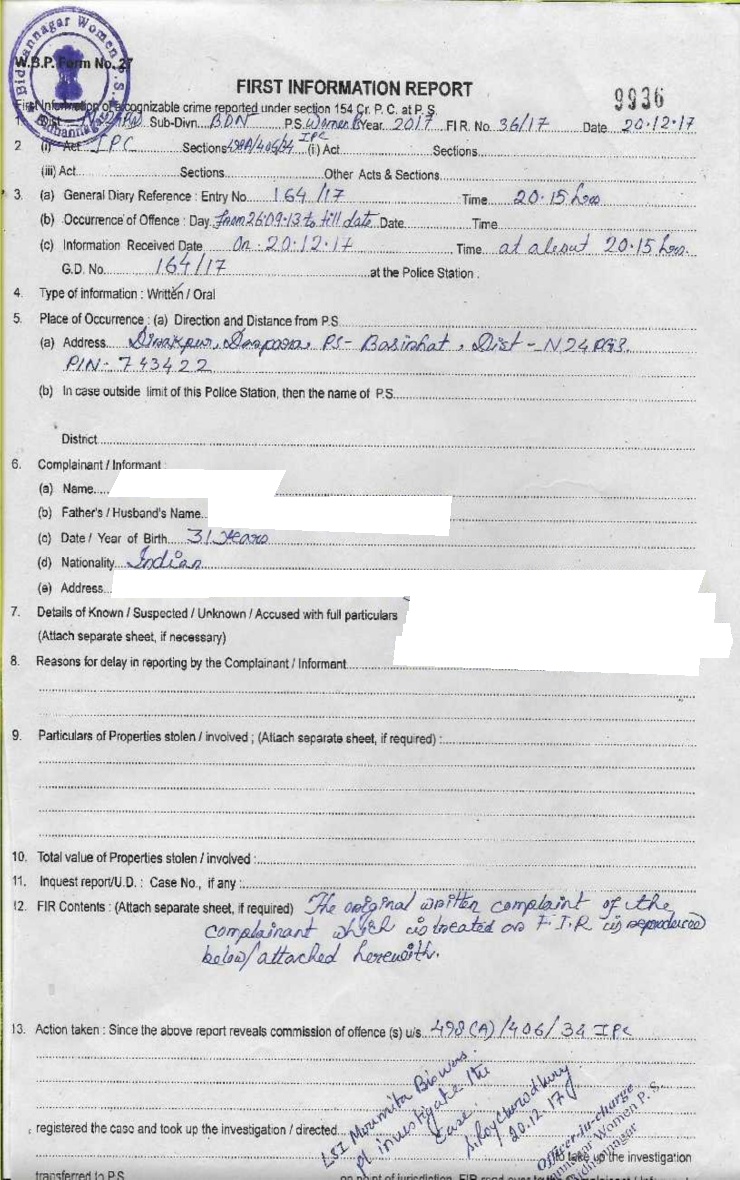 Bidhannagar Women P.S.
Bidhannagar
W.B.P. Form No. 27
FIRST INFORMATION REPORT
9936
First Information of a cognizable crime reported under section 154 Cr. P. C. at P.S.
1. Dist Sub-Divn. BDN P.S. Women Year 2017 FIR. No. 36/17 Date 20.12.17
2. (i) Act IPC Sections 498A/406/34 IPC (i) Act Sections
(iii) Act Sections Other Acts & Sections
3. (a) General Diary Reference : Entry No. 164/17 Time 20.15 hrs
(b) Occurrence of Offence : Day from 26.09.13 to till date Date Time
(c) Information Received Date On. 20.12.17 Time at about 20.15 hrs.
G.D. No. 164/17 at the Police Station :
4. Type of information : Written / Oral
5. Place of Occurrence : (a) Direction and Distance from P.S.
(a) Address PS- Basirhat, Dist - N 24 PGS.
PIN- 743422
(b) In case outside limit of this Police Station, then the name of P.S.
District
6. Complainant / Informant :
(a) Name
(b) Father's / Husband's Name
(c) Date / Year of Birth 31 Years
(d) Nationality Indian
(e) Address
7. Details of Known / Suspected / Unknown / Accused with full particulars
(Attach separate sheet, if necessary)
8. Reasons for delay in reporting by the Complainant / Informent
9. Particulars of Properties stolen / involved ; (Attach separate sheet, if required) :
10. Total value of Properties stolen / involved :
11. Inquest report/U.D. : Case No., if any :
12. FIR Contents : (Attach separate sheet, if required) The original written complaint of the
complainant which is treated as F.I.R is reproduced
below/attached herewith.
13. Action taken : Since the above report reveals commission of offence (s) u/s. 498(A)/406/34 IPC
LSI Moumita Biswas.
Pl investigate the
case.
20.12.17
Officer-in-charge
Bidhannagar Women P. S.
Bidhannagar
registered the case and took up the investigation / directed
to take up the investigation
transferred to P.S. on point of jurisdiction. FIR read over to